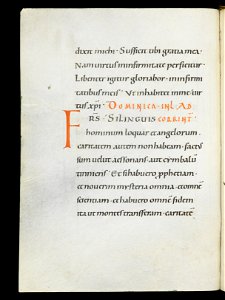 dixit michi · Sufficit tibi gratia mea ·
Nam uirtus in infirmitate perficitur ·
Libenter igitur gloriabor · in infirmi
tatibus meis · Ut inhabitet in me uir
tus xpi · DOMINICA · IN L · AD
RS SI LINGUIS CORRINT
F
hominum loquar et angelorum ·
caritatem autem non habeam · factus
sum uelut aes sonans · aut cymbalum
tinniens · Et si habuero prophetiam ·
et nouerim mysteria omnia · et omnem
scientiam · et si habuero omnem fidem
ita ut montes transferam · caritatem